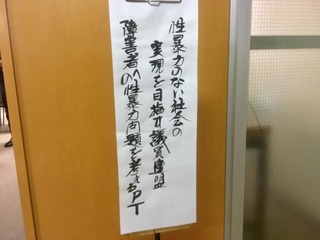 性暴力のない社会の
実現を目指す議員連盟
障害者への性暴力問題を考えるPT